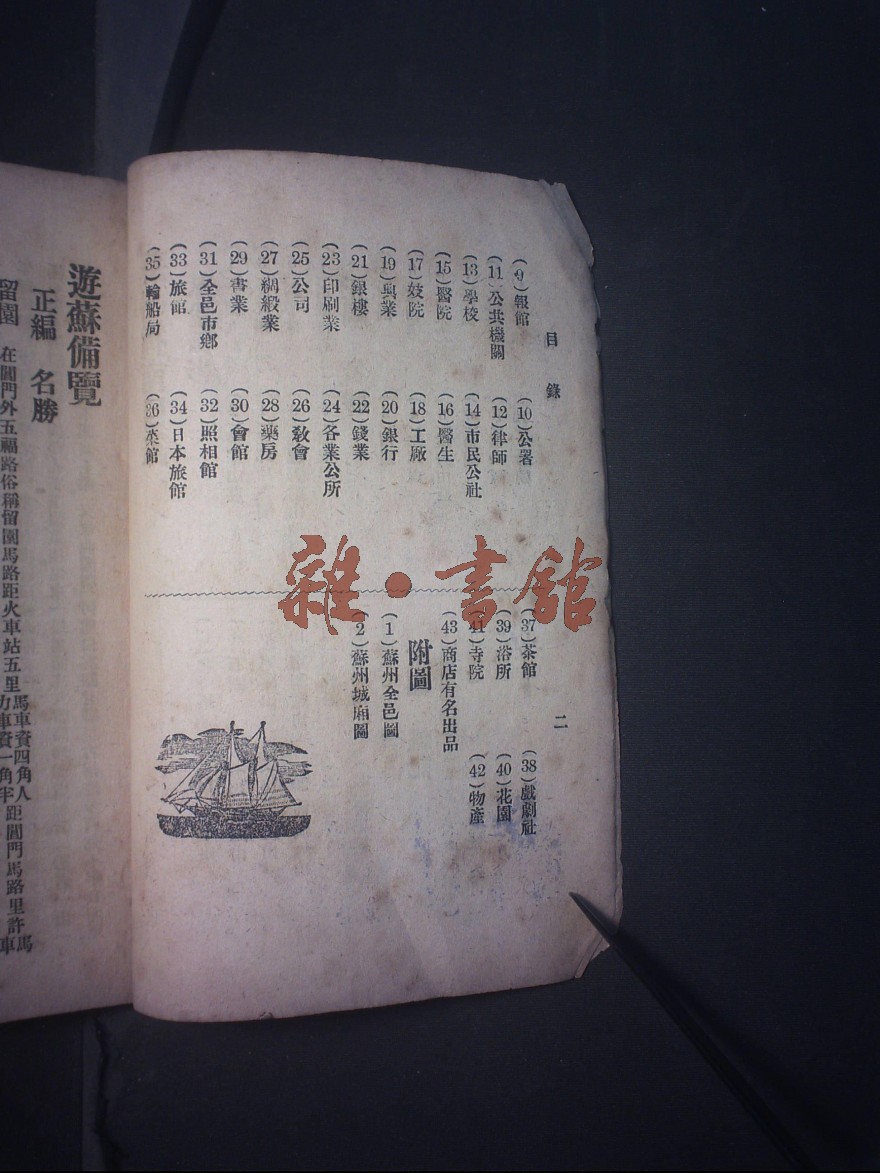 目錄
二
(9)報館
(10)公署
(11)公共機關
(12)律師
(13)學校
(14)市民公社
(15)醫院
(16)醫生
(17)妓院
(18)工廠
(19)典業
(20)銀行
(21)銀樓
(22)錢業
(23)印刷業
(24)各業公所
(25)公司
(26)教會
(27)綢緞業
(28)藥房
(29)書業
(30)會館
(31)全邑市鄉
(32)照相館
(33)旅館
(34)日本旅館
(35)輪船局
(36)菜館
(37)茶館
(38)戲劇社
(39)浴所
(40)花園
(41)寺院
(42)物產
(43)商店有名出品
附圖
(1)蘇州全邑圖
(2)蘇州城廂圖
雜·書館
遊蘇備覽
正編 名勝
留園 在閶門外五福路俗稱留園馬路距火車站五里馬車資四角人
力車資一角半距閶門馬路里許馬
車